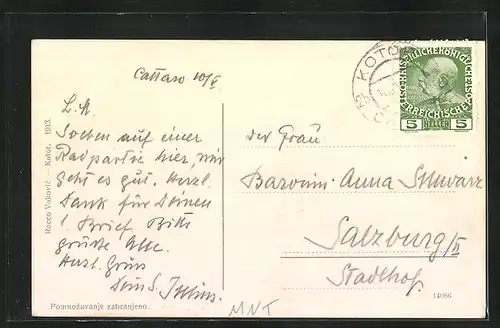 Cattaro 10/V.
L. A.
Soeben auf einer
Radpartie hier, mir
geht es gut. Herzl.
Dank für Deinen
l. Brief. Bitte
grüße Alle.
Herzl. Gruss
Dein S. Julius.
Rocco Vuković — Kotor. 1913.
Pomnožavanje zabranjeno.
MNT
KOTOR
KAISERLICHE KÖNIGLICHE
ÖSTERREICHISCHE
5 HELLER 5
der Frau
Baronin Anna Schwarz
Salzburg/II
Stadlhof
14086